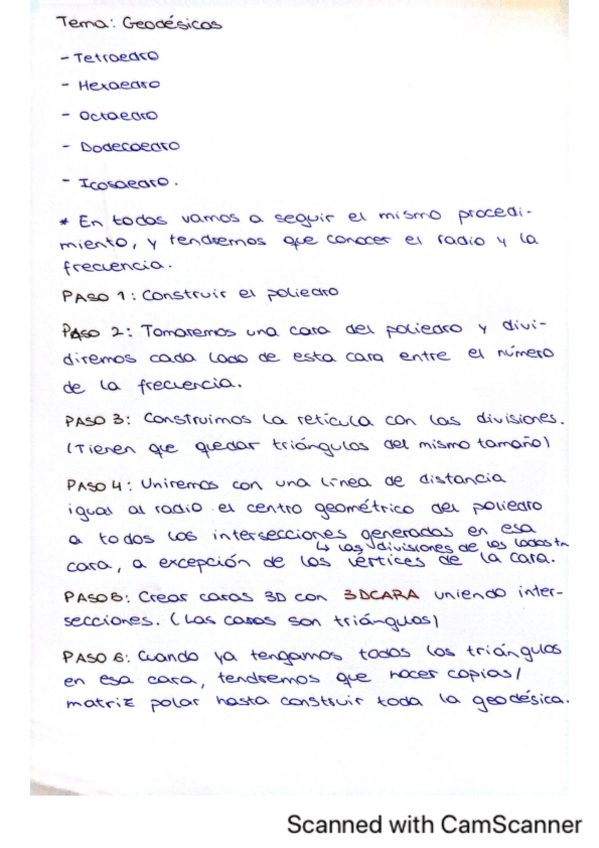 Tema: Geodésicas
- Tetraedro
- Hexaedro
- Octaedro
- Dodecaedro
- Icosaedro.
* En todos vamos a seguir el mismo procedi-
miento, y tendremos que conocer el radio y la
frecuencia.
PASO 1: Construir el poliedro
PASO 2: Tomaremos una cara del poliedro y divi-
diremos cada lado de esta cara entre el número
de la frecuencia.
PASO 3: Construimos la retícula con las divisiones.
(Tienen que quedar triángulos del mismo tamaño)
PASO 4: Uniremos con una línea de distancia
igual al radio el centro geométrico del poliedro
a todos los intersecciones generadas en esa
↳ las divisiones de los lados tn
cara, a excepción de los vértices de la cara.
PASO 5: Crear caras 3D con 3DCARA uniendo inter-
secciones. (Las caras son triángulos)
PASO 6: Cuando ya tengamos todos los triángulos
en esa cara, tendremos que hacer copias/
matriz polar hasta construir toda la geodésica.
Scanned with CamScanner